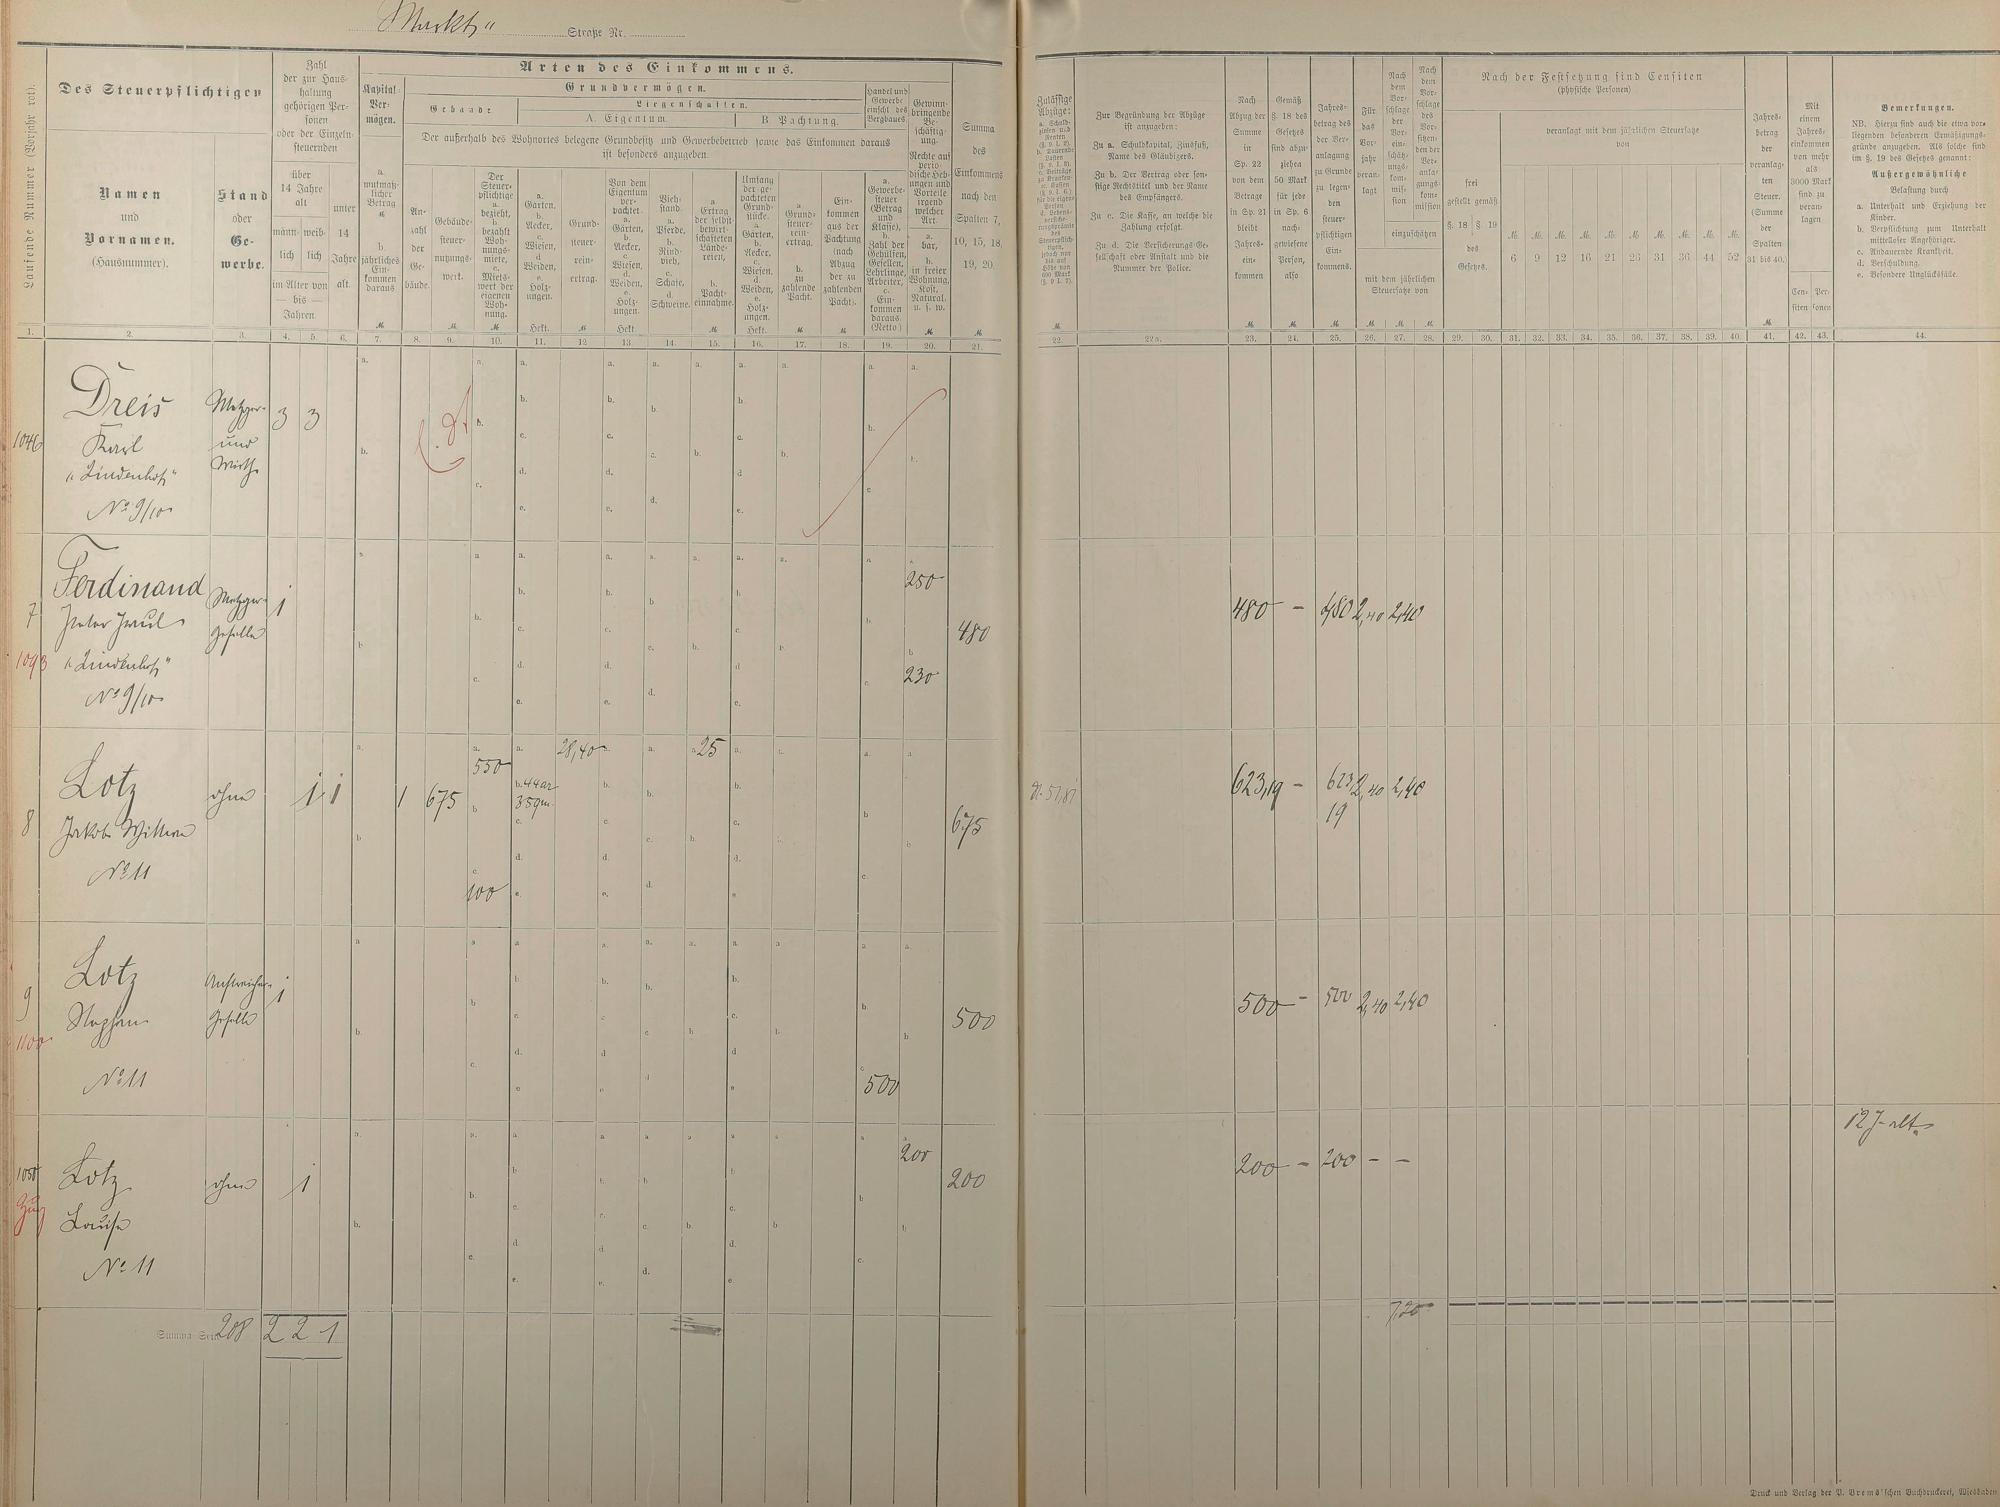 Markt "
Straße Nr.
Laufende Nummer (Vorjahr rot).
Des Steuerpflichtigen
Namen
und
Vornamen.
(Hausnummer).
Stand
oder
Ge-
werbe.
Zahl
der zur Haus-
haltung
gehörigen Per-
sonen
oder der Einzeln-
steuernden
über
14 Jahre
alt
männ-
lich
weib-
lich
im Alter von
— bis —
Jahren.
unter
14
Jahre
alt.
Arten des Einkommens.
Kapital-
Ver-
mögen.
a.
mutmaß-
licher
Betrag
M
b.
jährliches
Ein-
kommen
daraus
M
Grundvermögen.
Gebäude
Liegenschaften.
A. Eigentum.
B Pachtung.
Der außerhalb des Wohnortes belegene Grundbesitz und Gewerbebetrieb sowie das Einkommen daraus
ist besonders anzugeben.
An-
zahl
der
Ge-
bäude.
Gebäude-
steuer-
nutzungs-
wert.
M
Der
Steuer-
pflichtige
a.
bezieht,
b.
bezahlt
Woh-
nungs-
miete,
c.
Miets-
wert der
eigenen
Woh-
nung.
M
a.
Gärten,
b.
Aecker,
c.
Wiesen,
d
Weiden,
e.
Holz-
ungen.
Hekt.
Grund-
steuer-
rein-
ertrag.
M
Von dem
Eigentum
ver-
pachtet
a.
Gärten,
b.
Aecker,
c.
Wiesen,
d.
Weiden,
e.
Holz-
ungen.
Hekt
Vieh-
stand.
a.
Pferde,
b.
Rind-
vieh,
c.
Schafe,
d
Schweine.
a
Ertrag
der selbst-
bewirt-
schafteten
Lände-
reien,
b.
Pacht-
einnahme.
M
Umfang
der ge-
pachteten
Grund-
stücke.
a.
Gärten,
b.
Aecker,
c.
Wiesen,
d.
Weiden,
e.
Holz-
ungen.
Hekt.
a.
Grund-
steuer-
rein-
ertrag.
b.
zu
zahlende
Pacht.
M
Ein-
kommen
aus der
Pachtung
(nach
Abzug
der zu
zahlenden
Pacht).
M
Handel und
Gewerbe
einschl des
Bergbaues.
a.
Gewerbe-
steuer
(Betrag
und
Klasse),
b.
Zahl der
Gehülfen,
Gesellen,
Lehrlinge,
Arbeiter,
c.
Ein-
kommen
daraus.
(Netto)
Gewinn-
bringende
Be-
schäftig-
ung.
Rechte auf
perio-
dische Heb-
ungen und
Vorteile
irgend
welcher
Art.
a.
bar,
b.
in freier
Wohnung,
Kost,
Natural.
u. s. w.
M
Summa
des
Einkommens
nach den
Spalten 7,
10, 15, 18,
19, 20.
M
Zulässige
Abzüge:
M
Zur Begründung der Abzüge
ist anzugeben:
Zu a. Schuldkapital, Zinsfuß,
Name des Gläubigers.
Zu b. Der Vertrag oder son-
stige Rechtstitel und der Name
des Empfängers.
Zu c. Die Kasse, an welche die
Zahlung erfolgt.
Zu d. Die Versicherungs-Ge-
sellschaft oder Anstalt und die
Nummer der Police.
Nach
Abzug der
Summe
in
Sp. 22
von dem
Betrage
in Sp. 21
bleibt
Jahres-
ein-
kommen
M
Gemäß
§. 18 des
Gesetzes
sind abzu-
ziehen
50 Mark
für jede
in Sp. 6
nach-
gewiesene
Person,
also
M
Jahres-
betrag des
der Ver-
anlagung
zu Grunde
zu legen-
den
steuer-
pflichtigen
Ein-
kommens.
M
Für
das
Vor-
jahr
veran-
lagt
M
Nach
dem
Vor-
schlage
der
Vor-
ein-
schätz-
ungs-
kom-
mis-
sion
M
Nach
dem
Vor-
schlage
des
Vor-
sitzen-
den der
Ver-
anla-
gungs-
kom-
mission
M
einzuschätzen
mit dem jährlichen
Steuersatze von
Nach der Festsetzung sind Censiten
(physische Personen)
frei
gestellt gemäß
§. 18 § 19
des
Gesetzes.
veranlagt mit dem jährlichen Steuersatze
von
M. M. M. M. M. M. M. M. M. M.
6 9 12 16 21 26 31 36 44 52
Jahres-
betrag
der
veranlag-
ten
Steuer.
(Summe
der
Spalten
31 bis 40.)
M
Mit
einem
Jahres-
einkommen
von mehr
als
3000 Mark
sind zu
veran-
lagen
Cen-
siten
Per-
sonen
Bemerkungen.
NB. Hierzu sind auch die etwa vor-
liegenden besonderen Ermäßigungs-
gründe anzugeben. Als solche sind
im §. 19 des Gesetzes genannt:
Außergewöhnliche
Belastung durch
a. Unterhalt und Erziehung der
Kinder.
b. Verpflichtung zum Unterhalt
mittelloser Angehöriger.
c. Andauernde Krankheit.
d. Verschuldung.
e. Besondere Unglücksfälle.
1. 2. 3. 4. 5. 6. 7. 8. 9. 10. 11. 12 13. 14. 15. 16. 17. 18. 19. 20. 21. 22. 22a. 23. 24. 25. 26. 27. 28. 29. 30. 31. 32. 33. 34. 35. 36. 37. 38. 39. 40. 41. 42. 43. 44.
1046
Dreis
Karl
"Lindenhof"
No 9/10
Metzger
und
Wirth
3 3
7
1093
Ferdinand
Peter Paul
"Lindenhof"
No 9/10
Metzger-
Geselle
1
250
230
480
480 – 480 2,40 2,40
8
Lotz
Jakob Wittwe
No 11
ohne
1 1
1 675
550
100
b. 44 ar
35 qm
28,40
25
675
51,81
623,19 – 623,19 2,40 2,40
9
1100
Lotz
Stephan
No 11
Anstreicher-
Geselle
1
500
500
500 – 500 2,40 2,40
1050
Zug
Lotz
Louise
No 11
ohne
1
200
200
200 – 200 – –
12 J. alt
Summa Seite 208 2 2 1
7,20
Druck und Verlag der P. Brems'schen Buchdruckerei, Wiesbaden